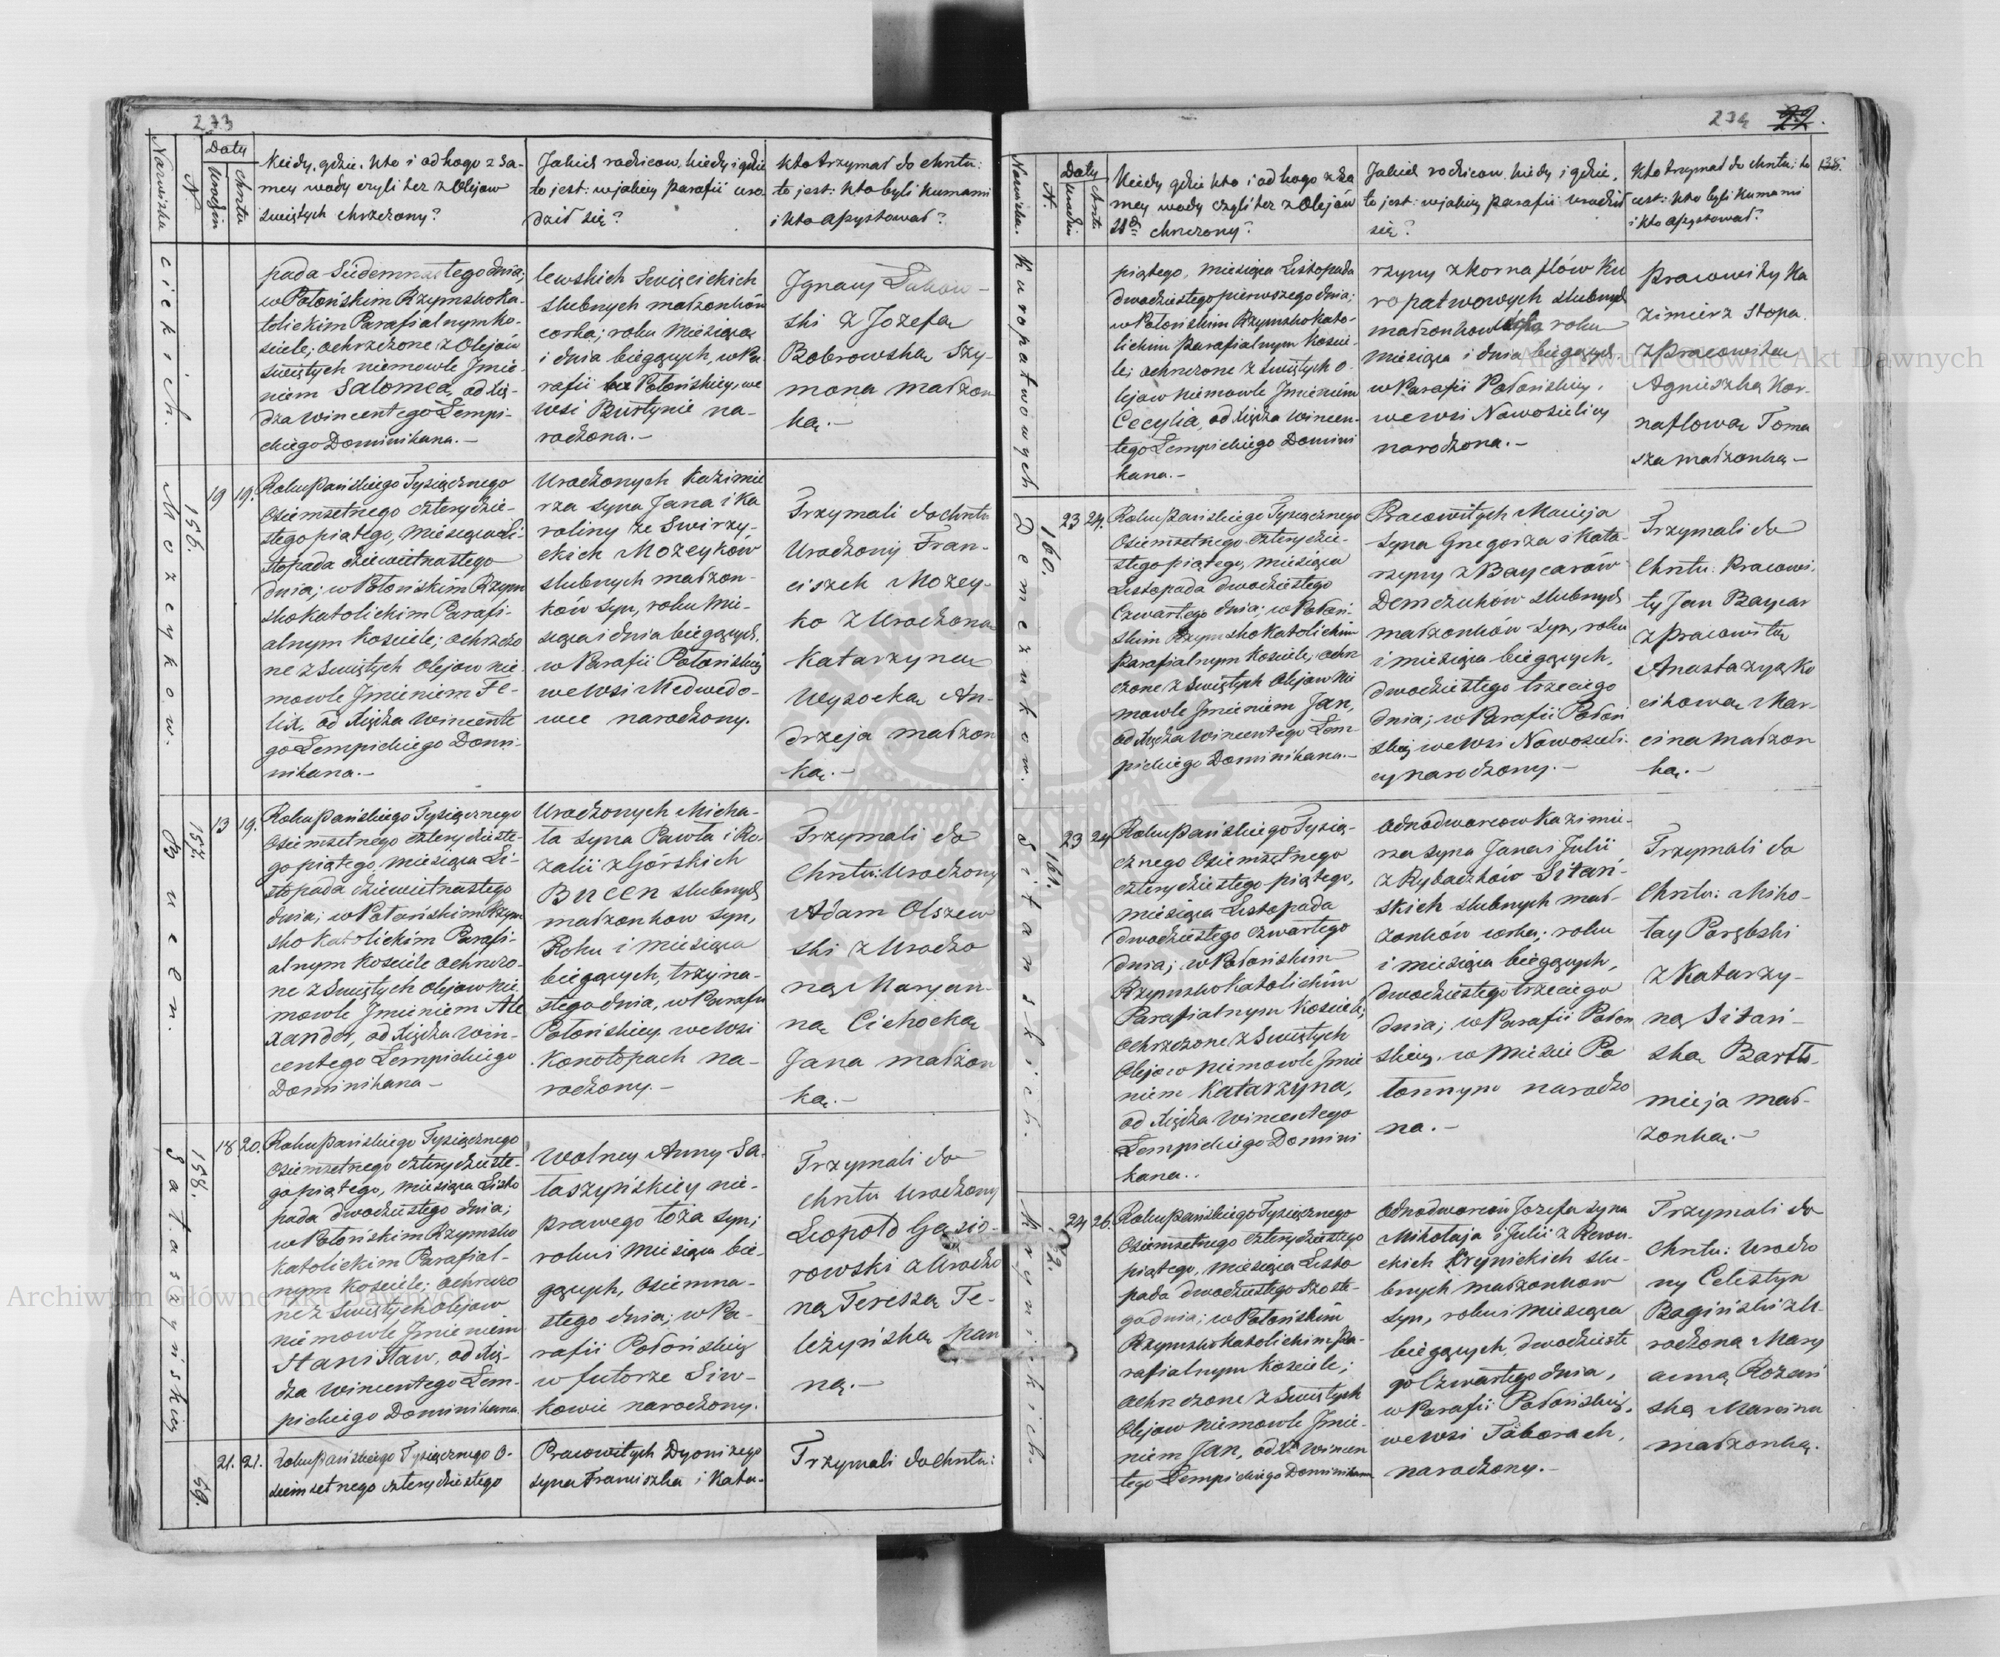 233
Nazwiska
N
Daty
Urodzin
Chrztu
Kiedy, gdzie, kto i od kogo z sa-
mey wody czyli też z Olejow
świętych chrzczony?
Jakich rodzicow, kiedy i gdzie
to jest: w jakiey parafii uro-
dził się?
Kto trzymał do chrztu:
to jest: kto byli kumami
i kto assystował?
cickich.
pada Siedemnastego dnia;
w Połońskim Rzymsko Ka-
tolickim Parafialnym Ko-
ściele; ochrzczone z Olejow
świętych niemowle Jmie-
niem Salomea, od Xię-
dza Wincentego Łempi-
ckiego Dominikana.-
lewskich Swięcickich
ślubnych małżonków
corka; roku miesiąca
i dnia bieżących, w Pa-
rafii Połońskiey, we
wsi Burtynie na-
rodzona.-
Jgnacy
ski z Jozefą
Bobrowską Szy-
mona małżon
ką.-
Mozeykow.
156.
19 19.
Roku Pańskiego Tysiącznego
Ośiemsetnego czterydzie-
stego piątego, miesiąca Li-
stopada dziewietnastego
dnia; w Połońskim Rzym
sko katolickim Parafi-
alnym Kościele; ochrzczo
ne z świętych Olejow nie-
mowle Jmieniem Fe-
lix, od Xiędza Wincente
go Łempickiego Domi-
nikana.-
Urodzonych Kazimie
rza syna Jana i Ka
roliny ze Swirzy-
ckich Mozeyków
ślubnych małżon-
ków syn, roku Mie-
siąca i dnia bieżących,
w Parafii Połońskiey
we wsi Medwedo-
wce narodzony.
Trzymali do chrztu
Urodzony Fran-
ciszek Mozey-
ko z Urodzoną
Katarzyną
Wysocką An-
drzeja małżon
ką.-
Bucen.
157.
13 19.
Roku Pańskiego Tysiącznego
Ośiemsetnego czterydzieste-
go piątego, miesiąca Li-
stopada dziewietnastego
dnia; w Połońskim Rzym
sko katolickim Parafi-
alnym Kościele ochrzczo-
ne z świętych Olejow nie
mowle Jmieniem Ale
xander, od Xiędza Win-
centego Łempickiego
Dominikana-
Urodzonych Micha-
ła syna Pawła i Ro-
zalii z Górskich
Bucen ślubnych
małżonkow syn,
Roku i miesiąca
bieżących, trzyna-
stego dnia, w Parafii
Połońskiey we wsi
Konotopach na-
rodzony.-
Trzymali do
Chrztu: Urodzony
Adam Olszew
ski z Urodzo
ną Maryan-
ną Cichocką
Jana małżon
ką.-
Sałaszynskiey
158.
18 20.
Roku Pańskiego Tysiącznego
Ośiemsetnego czterydzieste-
go piątego, miesiąca Listo
pada dwudziestego dnia;
w Połońskim Rzymsko
Katolickim Parafial-
nym Kościele; ochrzczo
ne z świętych Olejow
niemowle Jmieniem
Stanisław, od Xię-
dza Wincentego Łem-
pickiego Dominikana
Wolney Anny Sa-
łaszyńskiey nie-
prawego łoża syn;
roku i miesiąca bie-
żących, osiemna-
stego dnia; w Pa-
rafii Połońskiey
w futorze Siw-
kowie narodzony.
Trzymali do
chrztu Urodzony
Leopold Gąsio-
rowski z Urodzo
ną Teressą Te-
leżyńską pan
ną.-
159.
21. 21.
Roku Pańskiego Tysiącznego O-
śiemsetnego czterydziestego
Pracowitych Dyonizego
syna Franciszka i Kata-
Trzymali do chrztu:
234 22.
138.
Nazwiska.
N
Daty
Urodzin
Chrztu
Kiedy gdzie kto i od kogo z sa
mey wody czyli też z Olejów
chrzczony?
Jakich rodzicow, kiedy i gdzie,
to jest: w jakiey parafii urodził
się?
Kto trzymał do chrztu: to
iest: kto byli kumami
i kto assystował?
Kuropatwowych
piątego, miesiąca Listopada
dwudziestego pierwszego dnia;
w Połońskim Rzymsko Kato-
lickim Parafialnym Koscie-
le; ochrzczone z świętych O-
lejow niemowle Jmieniem
Cecylia, od Xiędza Wincen-
tego Łempickiego Domini
kana.-
rzyny z Kornaflów Ku
ropatwowych ślubnych
małżonkow roku
miesiąca i dnia bieżących
w Parafii Połońskiey,
we wsi Nowosielicy
narodzona.-
Pracowity Ka
zimierz Stopa.
z Pracowitą
Agnieszką Kor-
naflową Toma
sza małżonką-
Demczukow.
160.
23 24.
Roku Pańskiego Tysiącznego
Ośiemsetnego czterydzie-
stego piątego, miesiąca
Listopada dwudziestego
Czwartego dnia; w Połoń-
skim Rzymsko Katolickim
Parafialnym Kosciele; ochrz
czone z świętych Olejow nie
mowle Jmieniem Jan,
od Xiędza Wincentego Łem
pickiego Dominikana.-
Pracowitych Macieja
syna Grzegorza i Kata-
rzyny z Baycarów
Demczuków ślubnych
małżonków syn, roku
i miesiąca bieżących,
dwudziestego trzeciego
dnia; w Parafii Połoń
skiey we wsi Nowosieli-
cy narodzony.-
Trzymali do
Chrztu: Pracowi-
ty Jan Baycar
z Pracowitą
Anastazyą Ko
cikową Mar-
cina małżon
ką.-
Sitanskich.
161.
23 24
Roku Pańskiego Tysią-
cznego Ośiemsetnego
czterydziestego piątego,
miesiąca Listopada
dwudziestego czwartego
dnia; w Połońskim
Rzymsko Katolickim
Parafialnym Kosciele;
ochrzczone z świętych
Olejow niemowle Jmie
niem Katarzyna,
od Xiędza Wincentego
Łempickiego Domini
kana..
Odnodworcow Kazimie-
rza syna Jana i Julii
z Rybaczków Sitań-
skich ślubnych mał-
żonków corka; roku
i miesiąca bieżących,
dwudziestego trzeciego
dnia; w Parafii Połoń
skiey, w Mieście Po
łonnym narodzo
na.-
Trzymali do
Chrztu: Miko-
łay Parębski
z Katarzy-
ną Sitań-
ską Bartło-
mieja mał-
żonką.-
Krynickich.
162.
24 26.
Roku Pańskiego Tysiącznego
Ośiemsetnego czterydziestego
piątego, miesiąca Listo
pada dwudziestego szoste-
go dnia; w Połońskim
Rzymsko Katolickim Pa-
rafialnym Kosciele;
ochrzczone z świętych
Olejow niemowle Jmie-
niem Jan, od Xa Wincen
tego Łempickiego Dominikana
Odnodworców Jozefa syna
Mikołaja i Julii z Rewu-
ckich Krynickich ślu-
bnych małżonkow
syn, roku i miesiąca
bieżących, dwudzieste
go Czwartego dnia,
w Parafii Połońskiey,
we wsi Taborach,
narodzony.-
Trzymali do
Chrztu: Urodzo
ny Celestyn
Bagiński z U-
rodzoną Mary
anną Rozań
ską Marcina
małżonką.
Archiwum Główne Akt Dawnych
Archiwum Główne Akt Dawnych